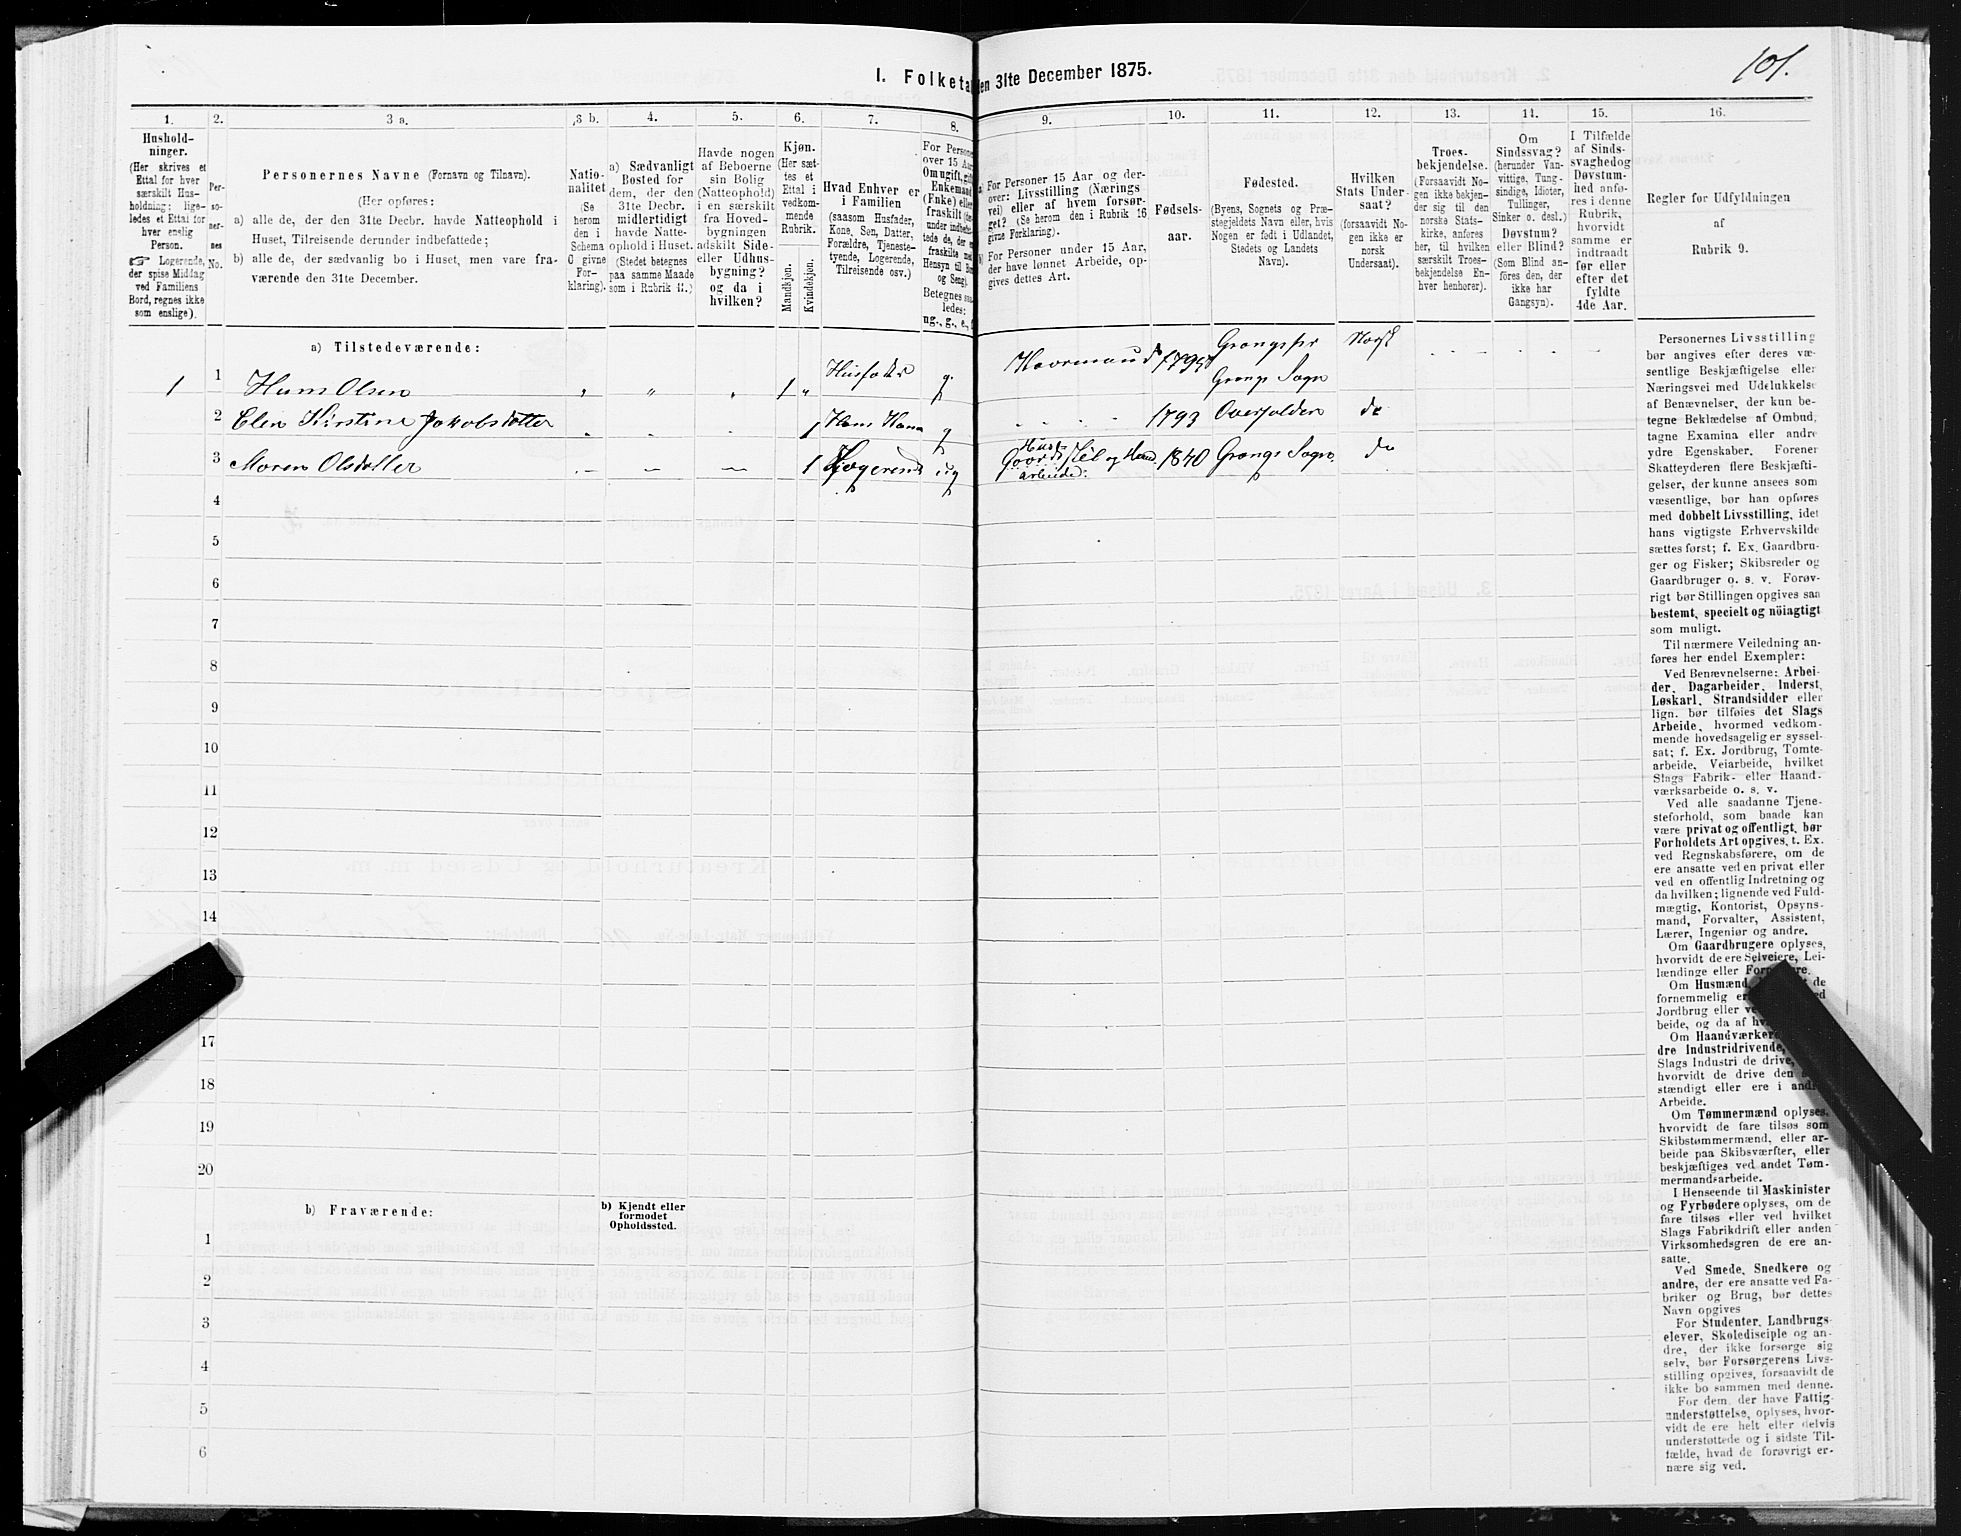 101.
I. Folketa
den 31te December 1875.
1.
Hushold-
ninger.
(Her skrives et
Ettal for hver
særskilt Hus-
holdning; lige-
ledes et Ettal for
hver enslig
Person.
☞ Logerende,
der spise Middag
ved Familiens
Bord, regnes ikke
som enslige).
2.
Per-
so-
ner-
nes
No.
3 a.
Personernes Navne (Fornavn og Tilnavn).
(Her opføres:
a) alle de, der den 31te Decbr. havde Natteophold i
Huset, Tilreisende derunder indbefattede;
b) alle de, der sædvanlig bo i Huset, men vare fra-
værende den 31te December.
3 b.
Natio-
nalitet
(Se
herom
den i
Schema
C givne
For-
klaring).
4.
a) Sædvanligt
Bosted for
dem, der den
31te Decbr.
midlertidigt
havde Natte-
ophold i Huset.
(Stedet betegnes
paa samme Maade
som i Rubrik 11.)
5.
Havde nogen
af Beboerne
sin Bolig
(Natteophold)
i en særskilt
fra Hoved-
bygningen
adskilt Side-
eller Udhus-
bygning?
og da i
hvilken?
6.
Kjøn.
(Her sæt-
tes et
Ettal i
vedkom-
mende
Rubrik.
Mandkjøn.
Kvindekjøn.
7.
Hvad Enhver er
i Familien
(saasom Husfader,
Kone, Søn, Datter,
Forældre, Tjeneste-
tyende, Logerende,
Tilreisende osv.)
8.
For Persone
over 15 Aar
Om ugift, gift
Enkemand
(Enke) eller
fraskilt
Betegnes saa-
ledes:
ug., g., e.,
9.
a) For Personer 15 Aar og der-
over: Livsstilling (Nærings-
vei) eller af hvem forsør-
get? (Se herom den i Rubrik 16
givne Forklaring).
b) For Personer under 15 Aar,
der have lønnet Arbeide, op-
gives dettes Art.
10.
Fødsels-
aar.
11.
Fødested.
(Byens, Sognets og Præ-
stegjeldets Navn eller, hvis
Nogen er født i Udlandet,
Stedets og Landets
Navn).
12.
Hvilken
Stats Under-
saat?
(forsaavidt No-
gen ikke er
norsk
Undersaat).
13.
Troes-
bekjendelse.
(Forsaavidt No-
gen ikke bekjen-
der sig til den
norske Stats-
kirke, anføres
her, til hvilken
særskilt Troes-
bekjendelse En-
hver henhører).
14.
Om
Sindssvag?
(herunder Van-
vittige, Tung-
sindige, Idioter,
Tullinger,
Sinker o. desl.)
Døvstum?
eller Blind?
(Som Blind an-
føres den, der
ikke har
Gangsyn).
15.
I Tilfælde
af Sinds-
svaghed og
Døvstum-
hed anfø-
res i denne
Rubrik,
hvorvidt
samme er
indtraadt
før eller
efter det
fyldte
4de Aar.
16.
Regler for Udfyldningen
af
Rubrik 9.
a) Tilstedeværende:
1 1 Hans Olsen 1 Husfader g. 1795 Norsk
Grongs Sogn
2 Elen Kirstine Jakobsdotter 1 Hans Kone g 1793 Overhalden do
3 Maren Olsdatter 1 Logerende ug 1840 Grongs Sogn do
arbeide:
4
5
6
7
8
9
10
11
12
13
14
17
18
19
20
b) Fraværende:
b) Kjendt eller
formodet
Opholdssted.
1
2
3
4
5
6
Personernes Livsstilling
bør angives efter deres væ-
sentlige Beskjæftigelse eller
Næringsvei med Udelukkelse
af Benævnelser, der kun be-
tegne Beklædelse af Ombud,
tagne Examina eller andre
ydre Egenskaber. Forener
Skatteyderen flere Beskjæfti-
gelser, der kunne ansees som
væsentlige, bør han opføres
med dobbelt Livsstilling, idet
hans vigtigste Erhvervskilde
sættes først; f. Ex. Gaardbru-
ger og Fisker; Skibsreder og
Gaardbruger o. s. v. Forøv-
rigt bør Stillingen opgives saa
bestemt, specielt og nöiagtigt
som muligt.
Til nærmere Veiledning an-
føres her endel Exempler:
Ved Benævnelserne: Arbei-
der, Dagarbeider, Inderst,
Løskarl, Strandsidder eller
lign. bør tilføies det Slags
Arbeide, hvormed vedkom-
mende hovedsagelig er syssel-
sat; f. Ex. Jordbrug, Tomte-
arbeide, Veiarbeide, hvilket
Slags Fabrik- eller Haand-
værksarbeide o. s. v.
Ved alle saadanne Tjene-
steforhold, som baade kan
være privat og offentligt, bør
Forholdets Art opgives, t. Ex.
ved Regnskabsførere, om de
ere ansatte ved en privat eller
ved en offentlig Indretning og
da hvilken; lignende ved Fuld-
mægtig, Kontorist, Opsyns-
mand, Forvalter, Assistent,
Lærer, Ingeniør og andre.
Om Gaardbrugere oplyses,
hvorvidt de ere Selveiere, Lei-
lændinge eller
Om Husmænd, de
fornemmelig
Jordbrug eller
beide, og da af
Om Haandværkere
dre Industridrivende,
Slags Industri de drive,
hvorvidt de drive den
stændigt eller ere i
Arbeide.
Om Tømmermænd oplyses,
hvorvidt de fare tilsøs som
Skibstømmermænd, eller ar-
beide paa Skibsværfter, eller
beskjæftiges ved andet Tøm-
mermandsarbeide.
I Henseende til Maskinister
og Fyrbødere oplyses, om de
fare tilsøs eller ved hvilket
Slags Fabrikdrift eller anden
Virksomhedsgren de ere an-
satte.
Ved Smede, Snedkere og
andre, der ere ansatte ved Fa-
briker og Brug, bør dettes
Navn opgives
For Studenter, Landbrugs-
elever, Skoledisciple og an-
dre, der ikke forsørge sig
selv, bør Forsørgerens Livs-
stilling opgives, forsaavidt de
ikke bo sammen med denne.
For dem, der have Fattig-
understøttelse, oplyses, hvor-
vidt de ere helt eller delvis
understøttede og i sidste Til-
fælde, hvad de forøvrigt er-
nære sig ved.